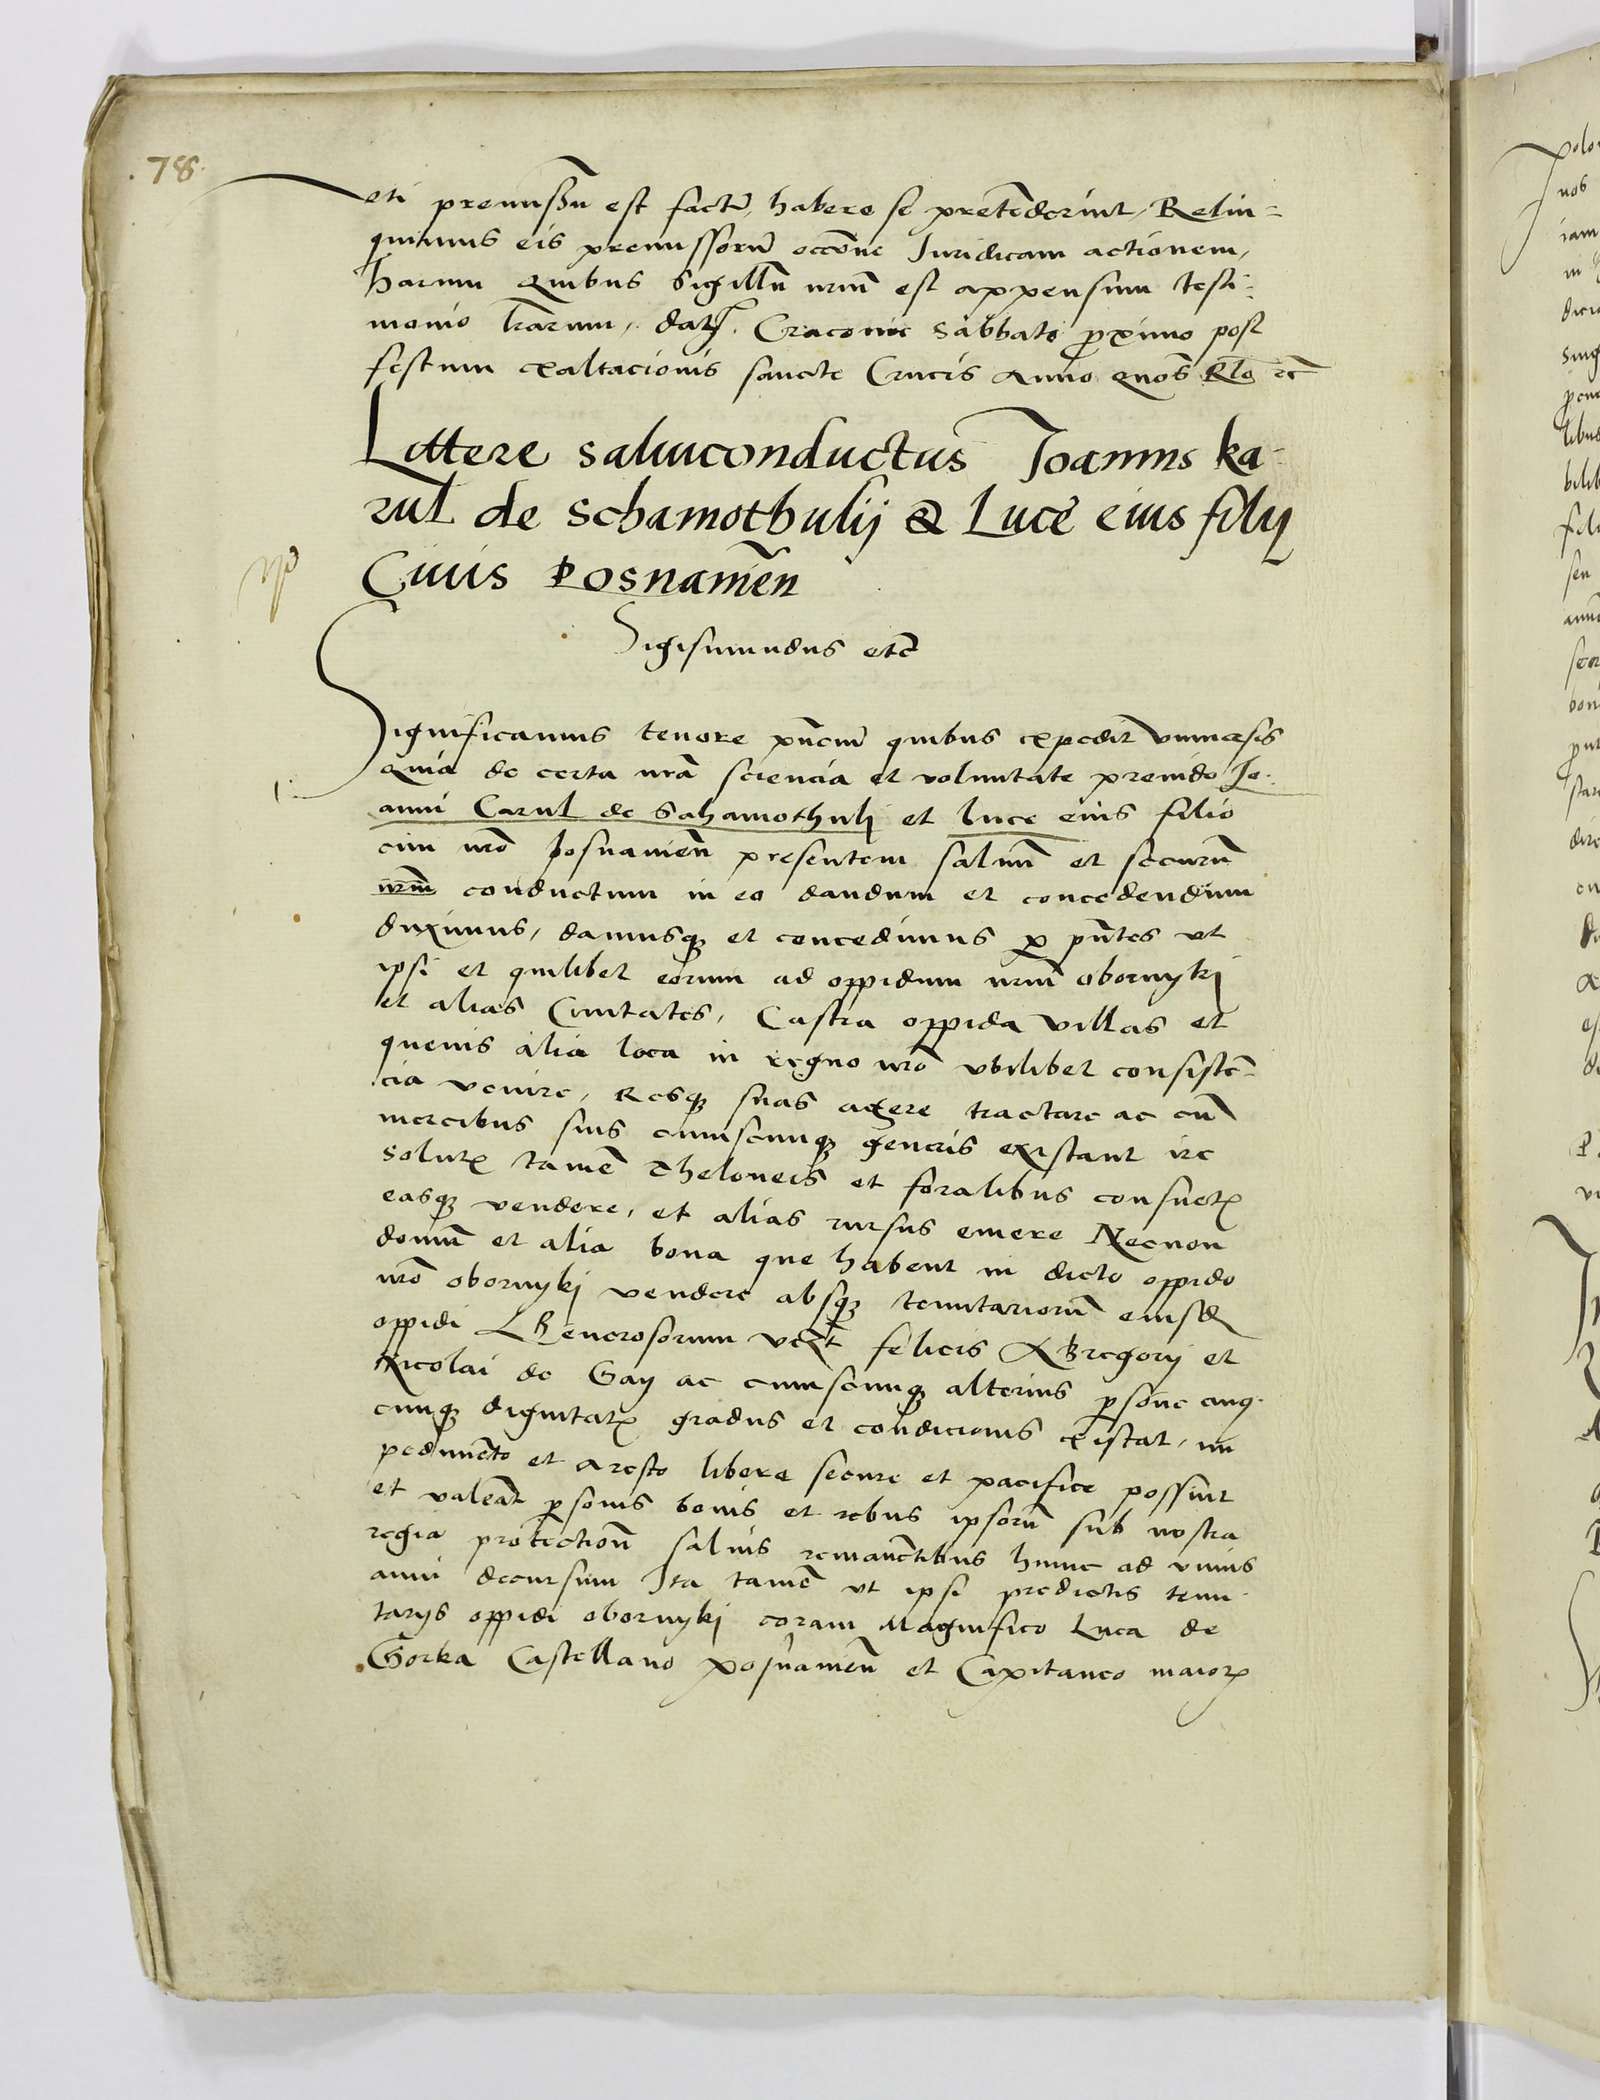 .78.
uti premissũ est factũ, habere se pretẽderint, Relin=
quimus eis premissorũ occõne Iuridicam actionem,
harum quibus Sigillũ nrũm est appensum testi:
monio lrãrum, dat. Cracovie sabbato proximo post
festum exaltacionis sancte Crucis Anno quos Rlo ec̃
Littere salviconductus Ioannis ka=
rul de Schamothulij & Luce eius filij
Civis Posnamẽn
Sigismundus etc̃
Significamus tenore pñciũ quibus expedit vniversis
Quia de certa nrã sciencia et voluntate premdo Io.
anni Carul de Sahamothulj et luce eius filio
civi nrõ Posnanieñ presentem salvũ et securũ
nrũm conductum in eo dandum et concedendum
duximus, damusq et concedimus p pñtes vt
ipsi et quilibet eorum ad oppidum nrũm obornykj
et alias Civitates, Castra oppida villas et
quevis alia loca in regno nrõ vbilibet consistẽ=
cia venire, Resq suas agere tractare ac cũ
mercibus suis cuiuscunq generis existant ire
solutis tamẽ Theloneis et foralibus consuetis
easq vendere, et alias rursus emere Necnon
domũ et alia bona que habent in dicto oppido
nrõ obornykj vendere absq tenutariorũ eiusd
oppidi Generosorum vczt felicis Gregorij et
Nicolai de Gay ac cuiuscunq alterius psone cuiq.
cunq dignitatis gradus et condicionis existat, im
pedimẽto et aresto libere secure et pacifice possint
et valeãt psonis bonis et rebus ipsorũ sub nostra
regia protectioñ salvis remanẽtibus hinc ad vnius
anni decursum Ita tamẽ vt ipsi predictis tenu
tarijs oppidi obornykj coram Magnifico Luca de
Gorka Castellano Posnanieñ et Capitaneo maioris